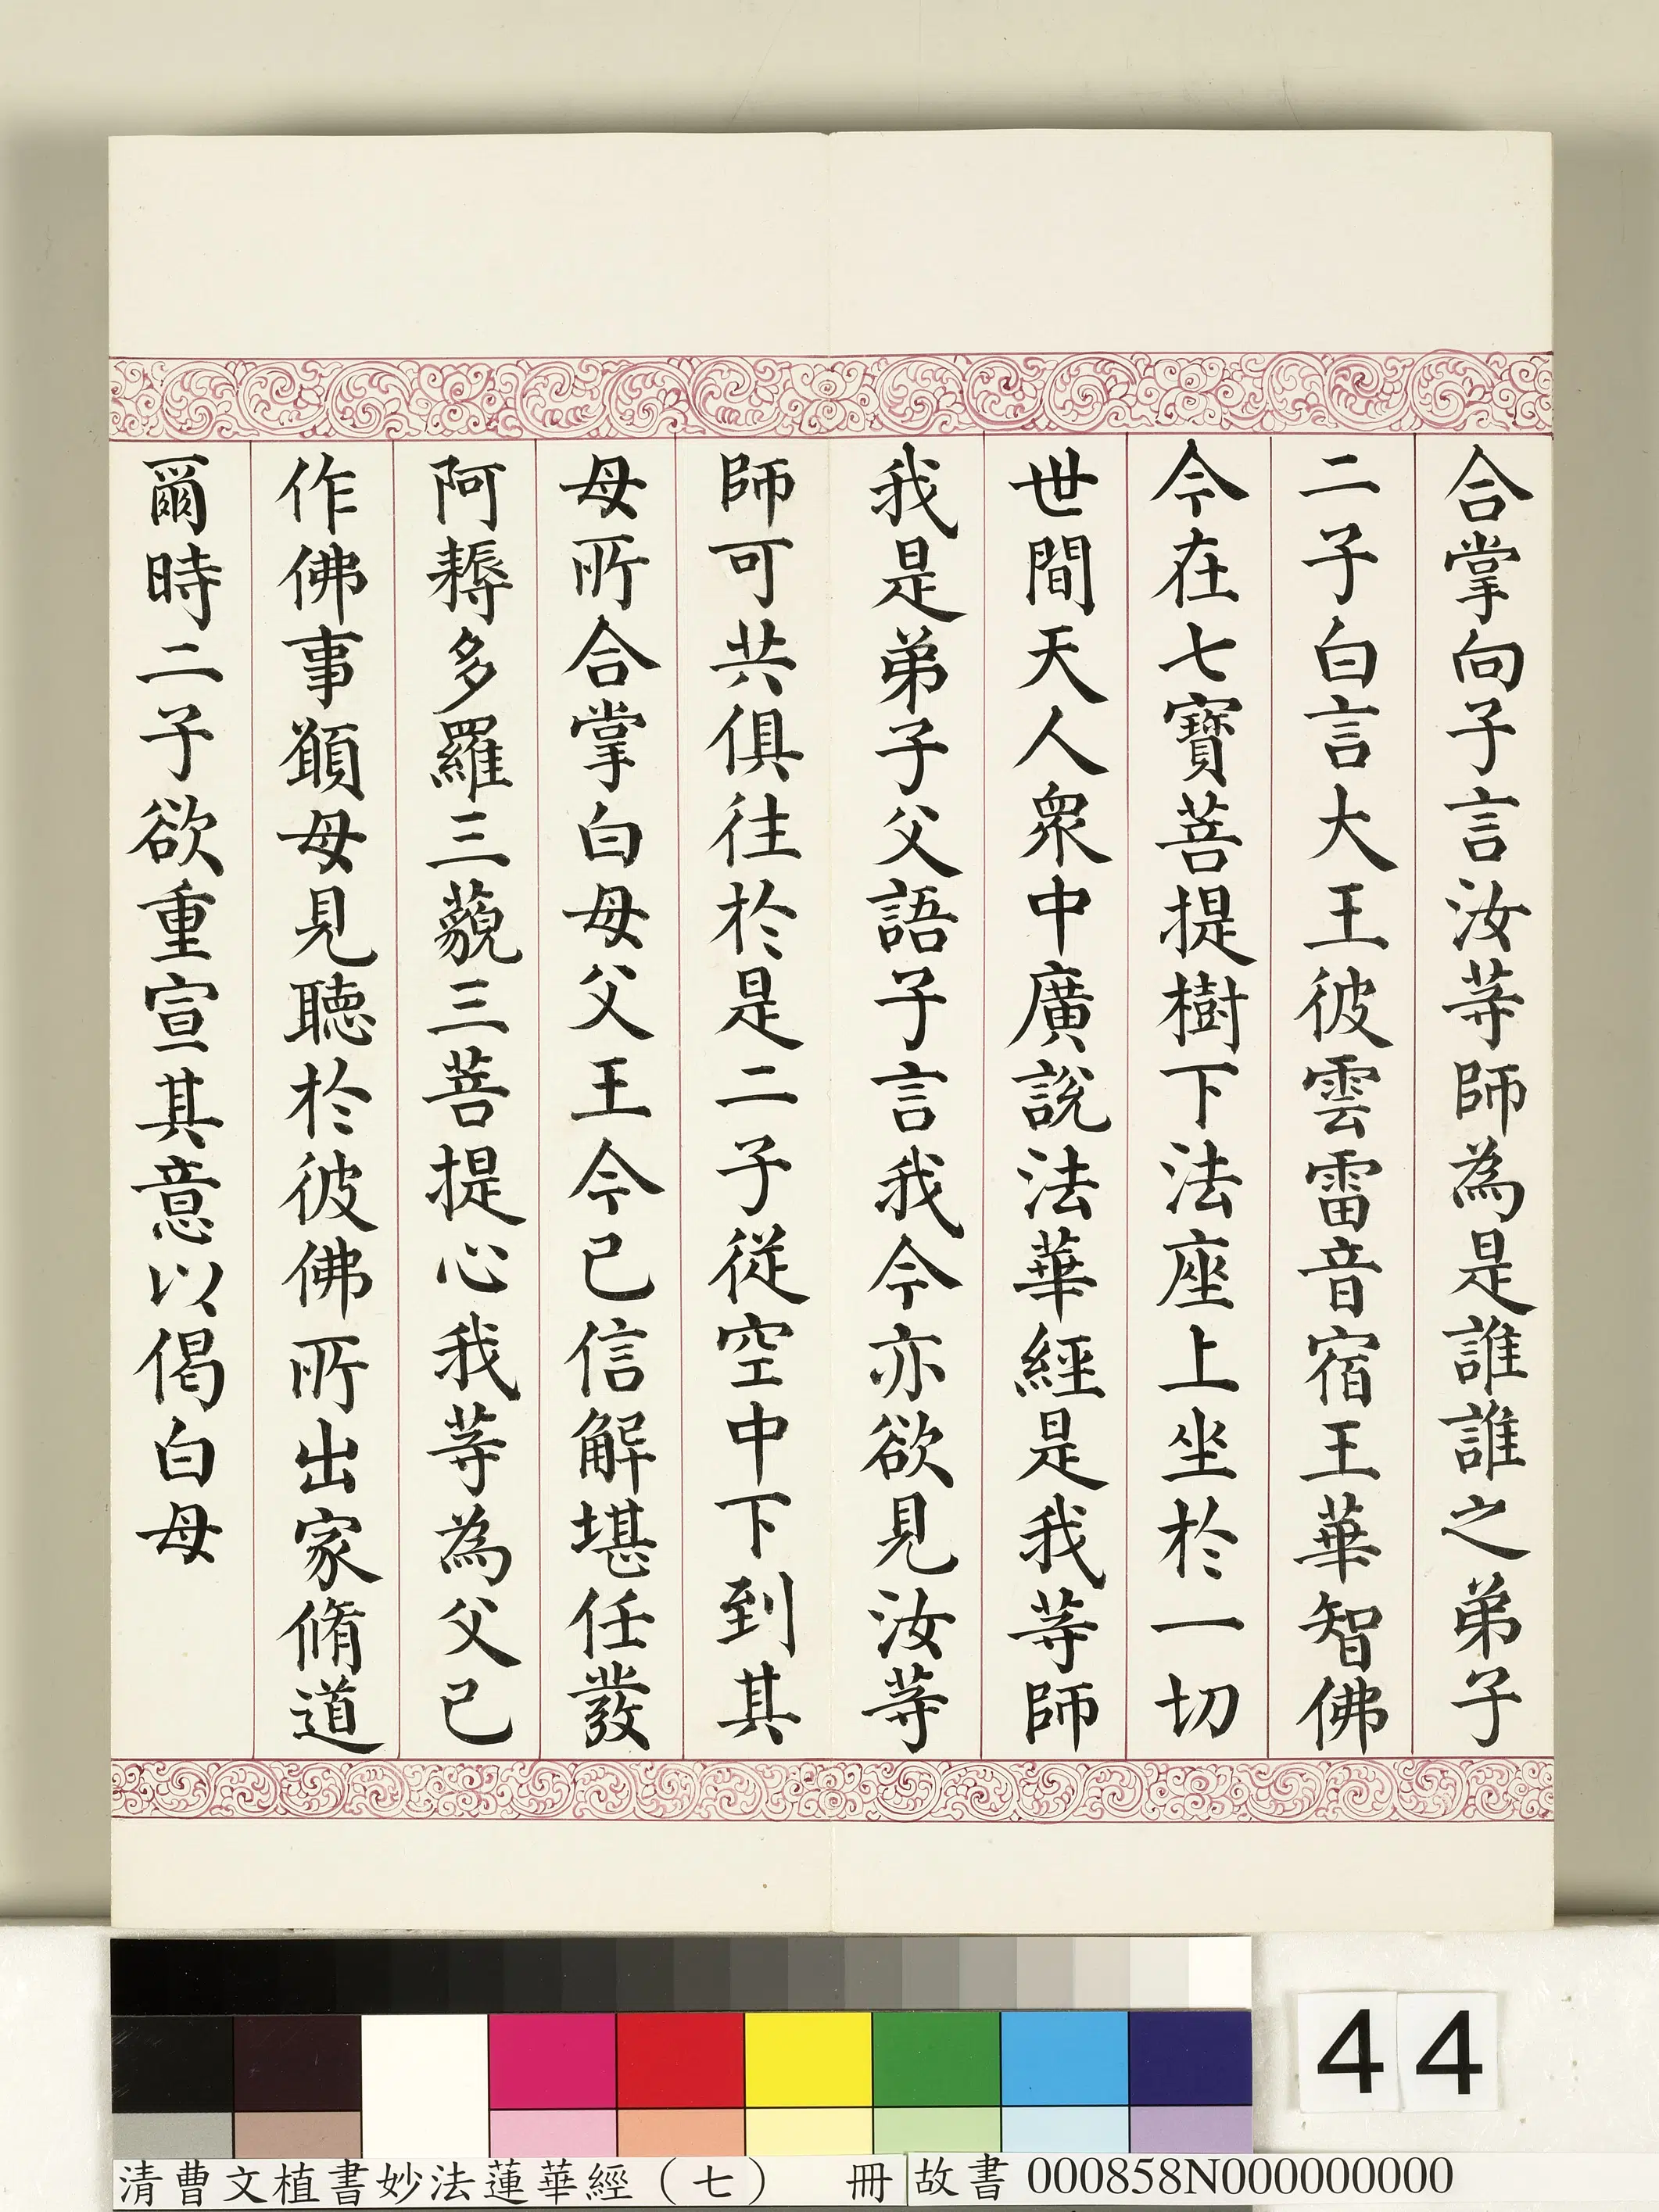 合掌向子言汝等師為是誰誰之弟子
二子白言大王彼雲雷音宿王華智佛
今在七寶菩提樹下法座上坐於一切
世間天人眾中廣說法華經是我等師
我是弟子父語子言我今亦欲見汝等
師可共俱往於是二子從空中下到其
母所合掌白母父王今已信解堪任發
阿耨多羅三藐三菩提心我等為父已
作佛事願母見聽於彼佛所出家脩道
爾時二子欲重宣其意以偈白母
44
清曹文植書妙法蓮華經(七) 冊 故書 000858N000000000